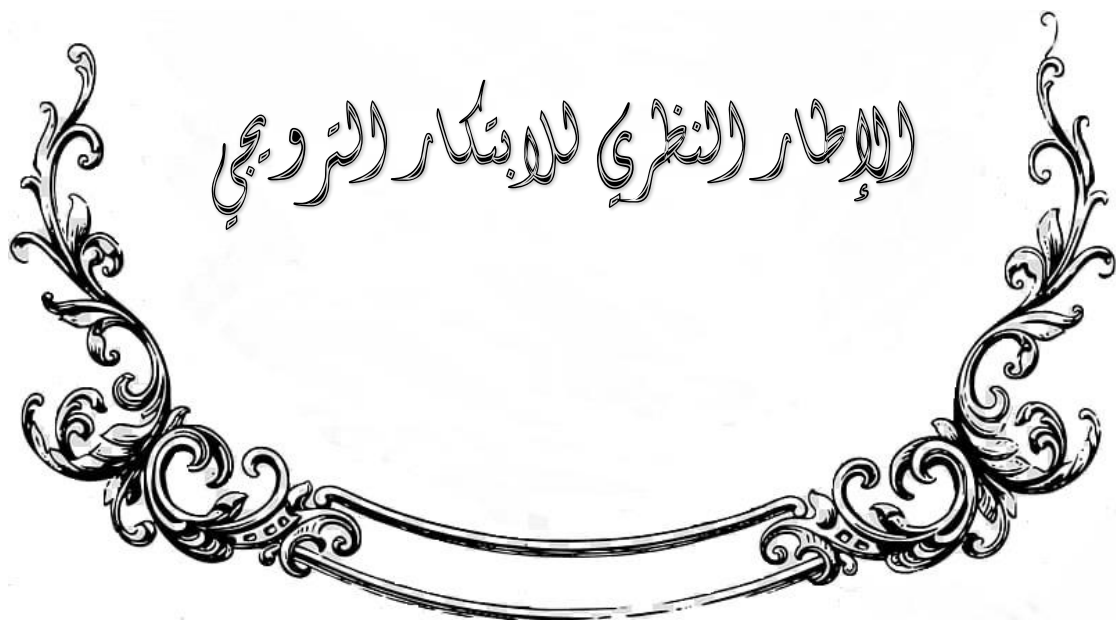 الإطار النظري للابتكار الترويجي